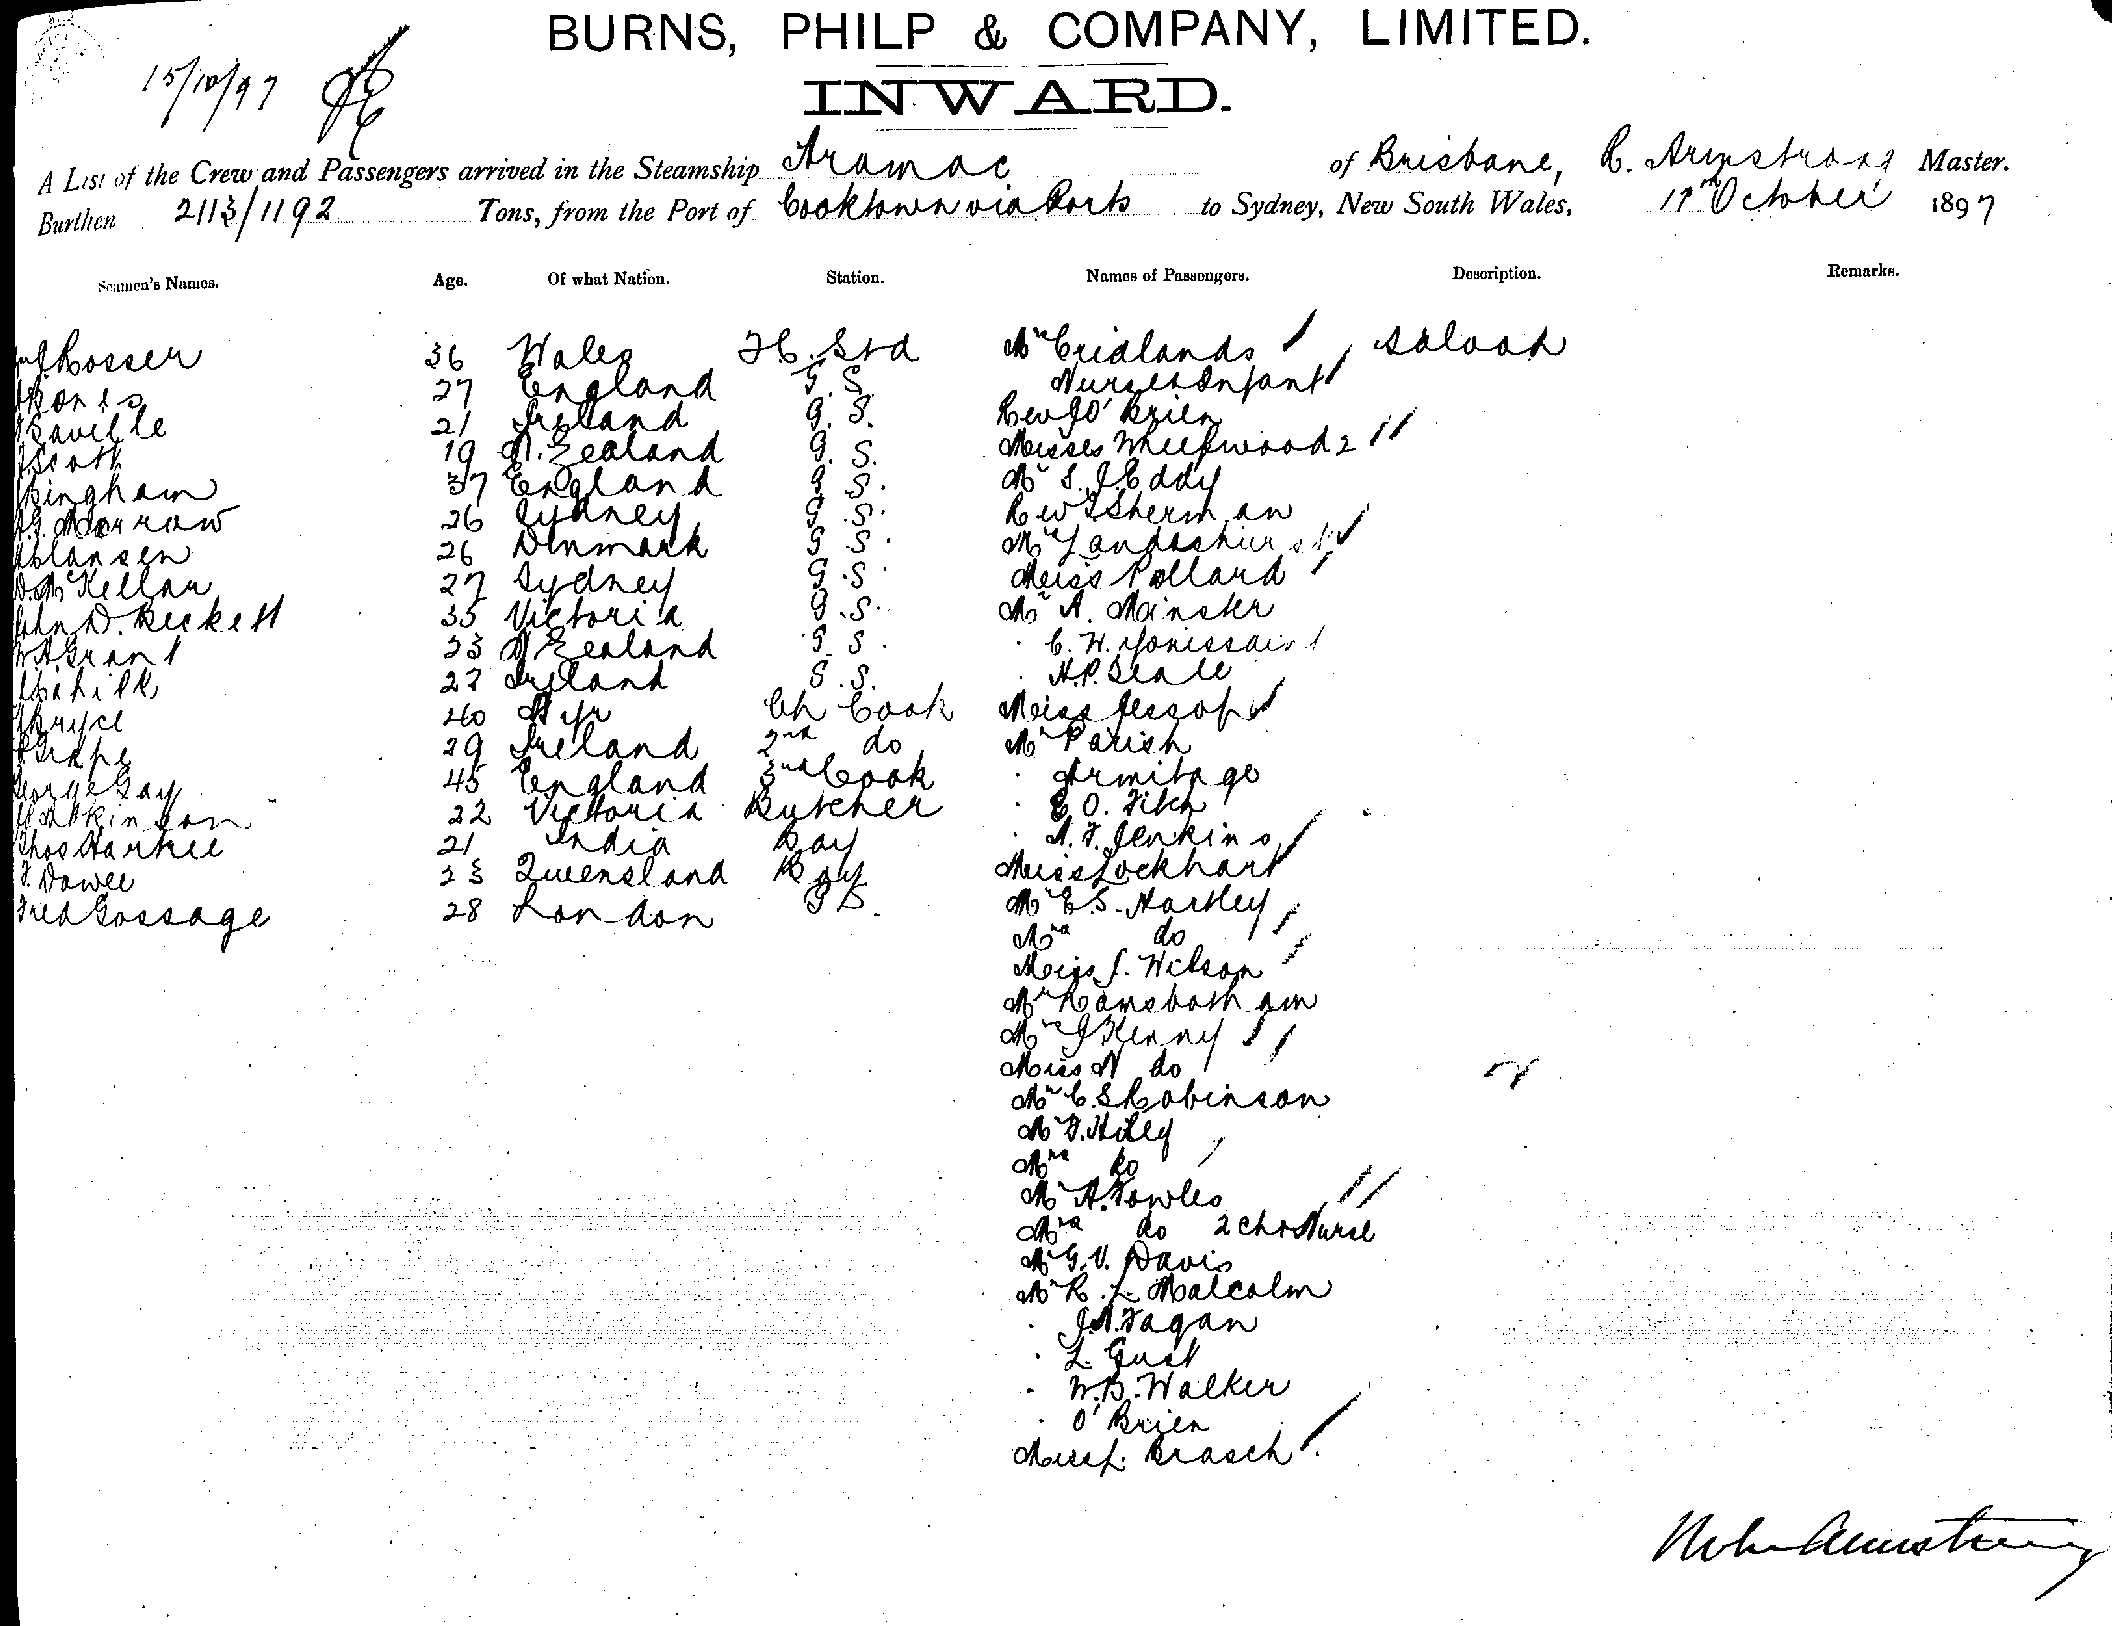 BURNS, PHILP & COMPANY, LIMITED.
15/10/97
INWARD.
A List of the Crew and Passengers arrived in the Steamship Aramac of Brisbane, R. Armstrong Master.
Burthen 2113/1192 Tons, from the Port of Cooktown via Ports to Sydney, New South Wales, October 1897
Seamen's Names. Age. Of what Nation. Station. Names of Passengers. Description. Remarks.
Rosser 36 Wales Std Mr Cridlands Saloon
27 England G. S. Nurse & Infant
Saville 21 Ireland G. S. Rev J O'Brien
Scott 19 N. Zealand G. S. Misses Wheelwood 2
Bingham 37 England G S. Mr S. J. Eddy
Morrow 26 Sydney G. S. Rev Sherman
Hansen 26 Denmark G S.
D. McKellar 27 Sydney G. S Miss Pollard
John D. Beckett 35 Victoria G. S. Mr A. Minster
Grant 23 N Zealand G S. C. H.
Cahill 27 Ireland S. S. H. P. Seale
Bryce 40 Ayr Ch Cook Miss Jessop
29 Ireland 2nd do Mr Parish
George Gay 45 England 3rd Cook Armitage
Atkinson 22 Victoria Butcher E O. Fitch
Thos Hartree 21 India Boy A. F. Jenkins
F. Dowee 23 Queensland Boy Miss Lockhart
Fred Gossage 28 London G S. Mr E. S. Hartley
Mrs do
Miss J. Wilson
Mr Ramsbotham
J Kenny
Miss N do
Mr C. S Robinson
Mr F. Hiley
Mrs do
Mr A. Fowles
Mrs do 2 ch & Nurse
Mr G. V. Davis
Mr R. L. Malcolm
J. A. Fagan
L. Gust
W. B. Walker
O'Brien
Miss J. Brasch
Armstrong